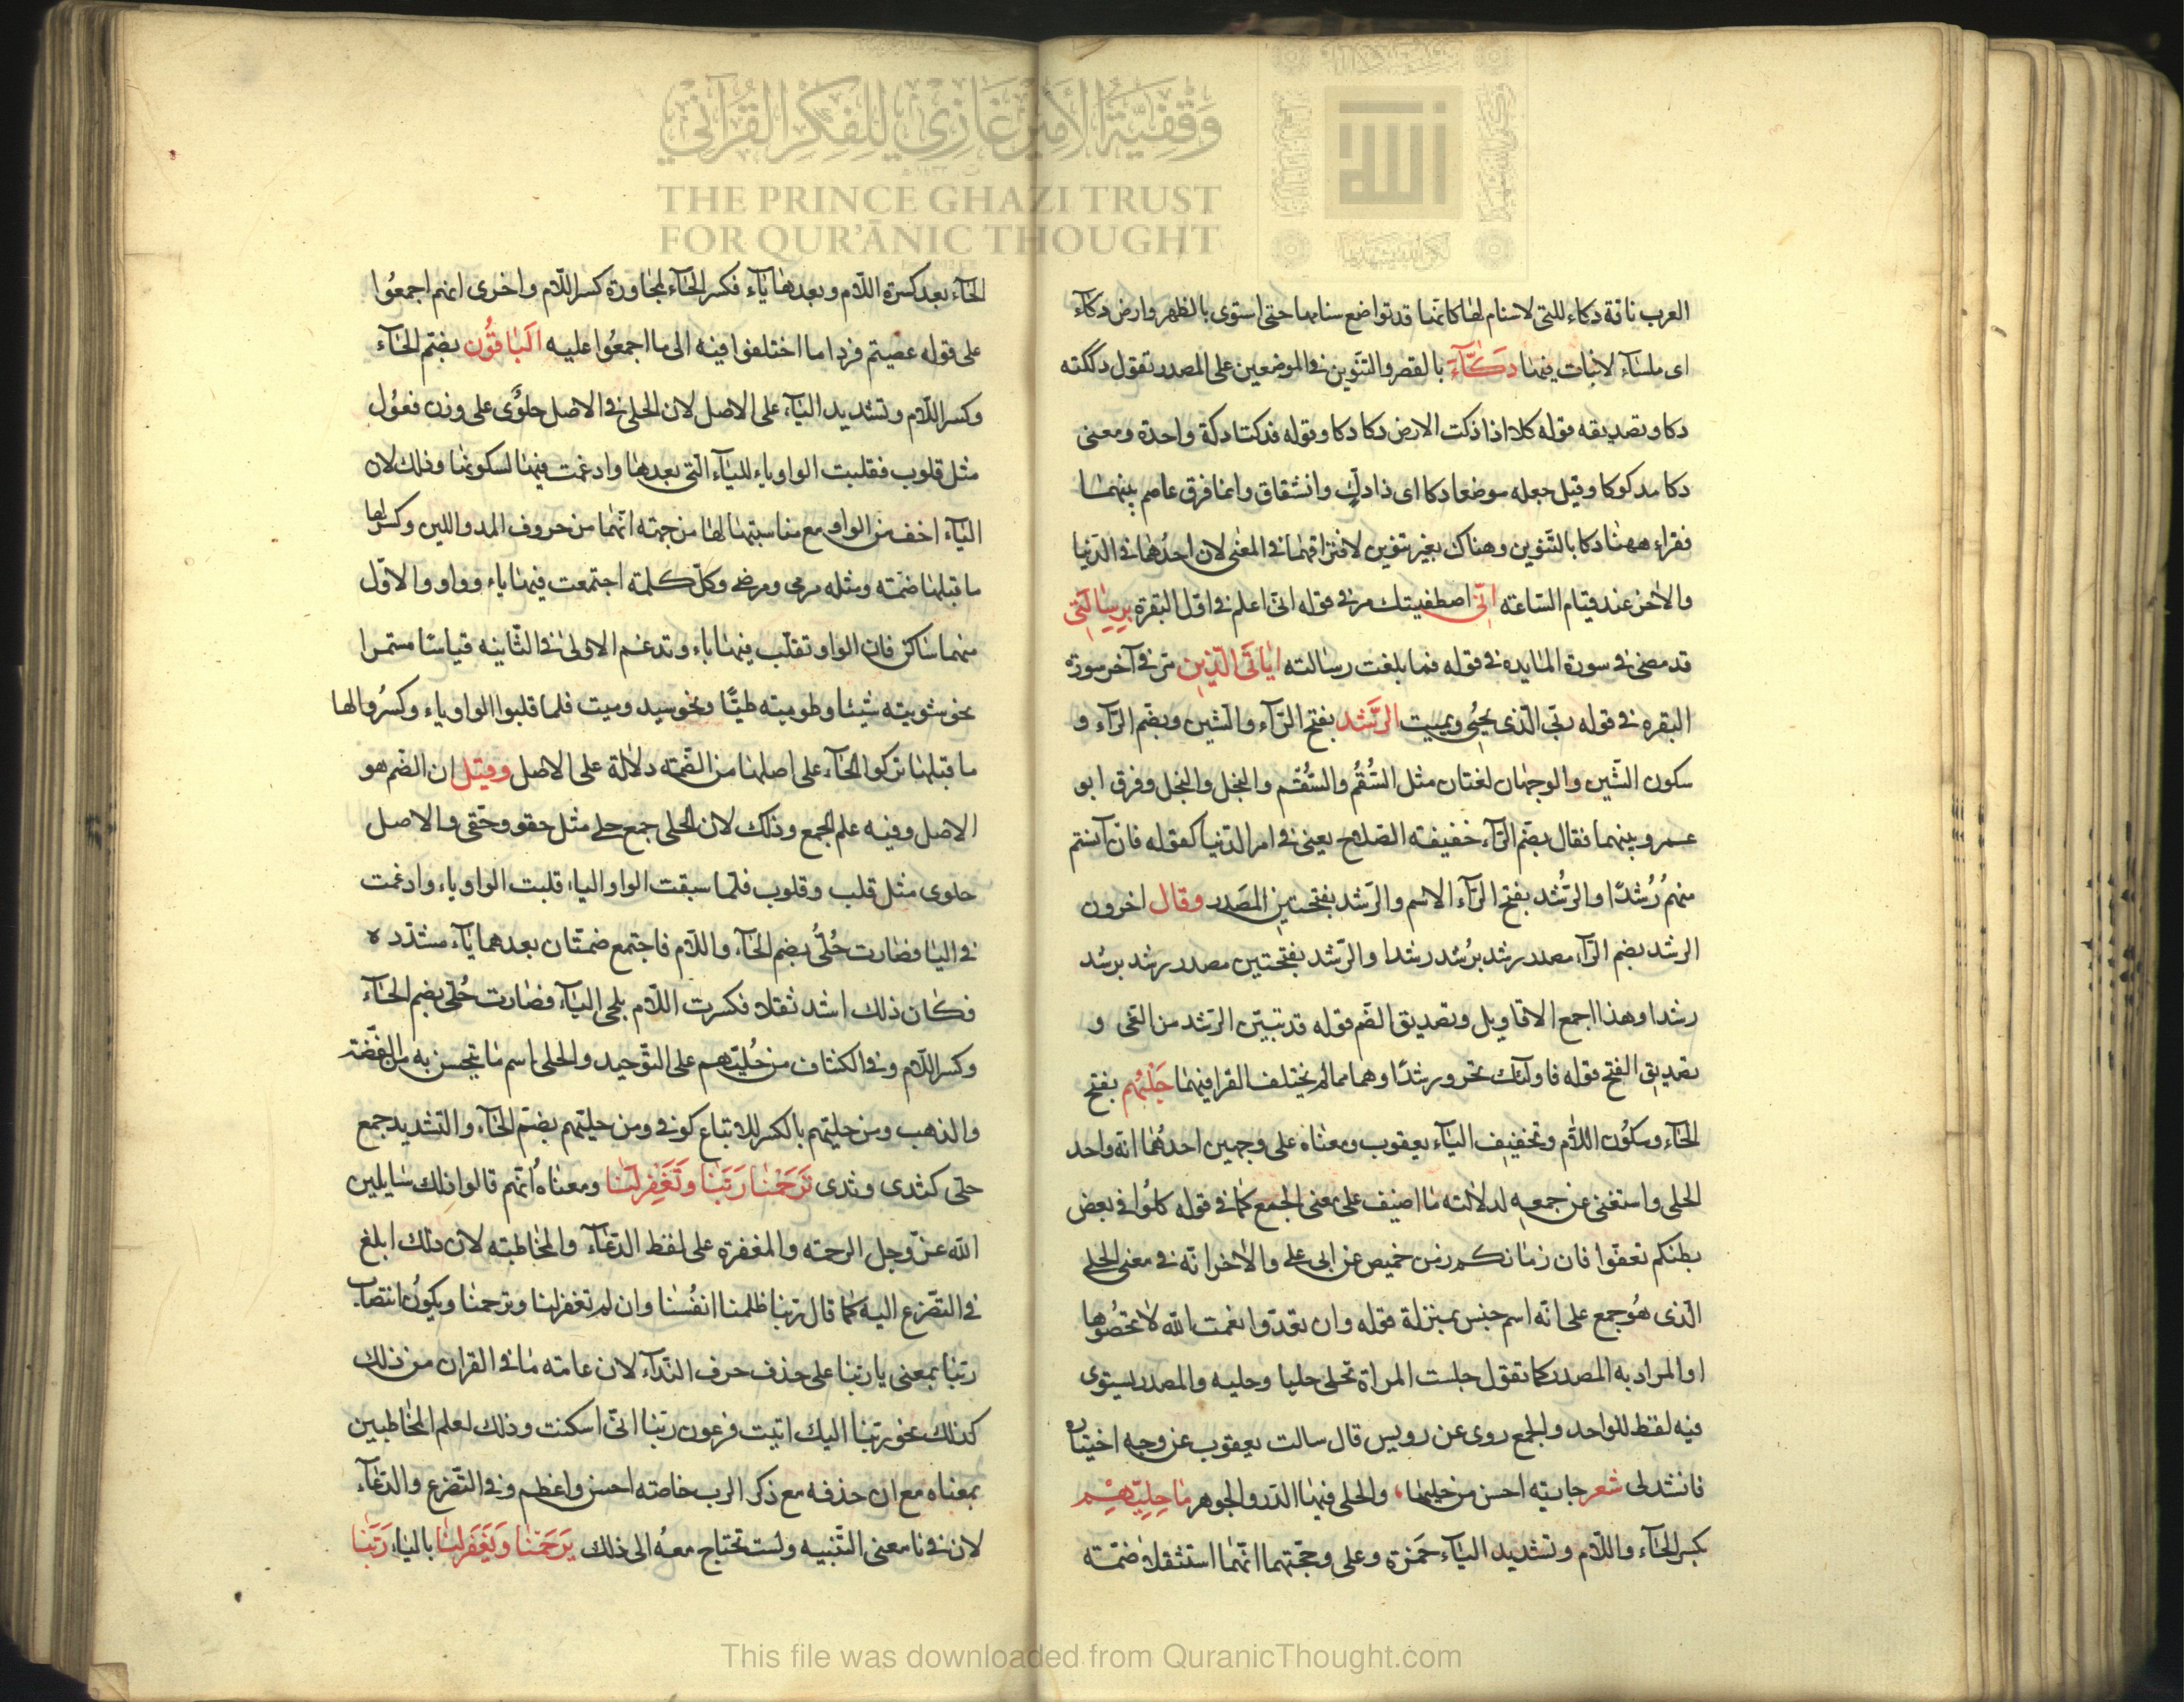 العرب ناقة دكاء للتى لاسنام لها كانما قد تواضع سنامها حتى استوى بالظهر وارض دكآء
اى ملسآء لانبات فيها دَكَّآءَ بالقصر والتنوين فى الموضعين على المصدر تقول دككته
دكا وتصديقه قوله كلا اذا دكت الارض دكا دكا وقوله فدكتا دكة واحدة ومعنى
دكا مدكوكا وقيل جعله موضعا دكا اى ذا دلٍ وانشقاق وانما فرق عاصم بينهما
فقراء ههنا دكا بالتنوين وهناك بغير تنوين لافتراقهما فى المعنى لان احدهما فى الدنيا
والاخر عند قيام الساعته انّى اصطفيتك مر فى قوله انى اعلم فى اوّل البقرة برسالتى
قد مضى فى سورة المايده فى قوله فما بلغت رسالته اياتى الّذين مر فى آخر سورة
البقره فى قوله ربى الّذى يحيى ويميت الرَّشد بفتح الرّآء والشين وبضم الرّآء و
سكون الشين والوجهان لغتان مثل السُّقُم والسَّقَم والبخل والبخل وفرق ابو
عمرو بينهما فقال بضم الرّآء خفيفته الصلاح يعنى فى امر الدّنيا كقوله فان آنستم
منهم رُشدًا والرُّشد بفتح الرّآء الاسم والرّشد بفتحتين المصدر وقال اخرون
الرشد بضم الرّآء مصدر رشد يرُشد رشدا والرّشد بفتحتين مصدر رشد يرشد
رشدا وهذا اجمع الاقاويل وتصديق الضم قوله قد تبيّن الرّشد من الغى و
تصديق الفتح قوله فاولئك تحرو رشدًا وهما مما لم يختلف القرا فيهما حَلْيهم بفتح
الحآء وسكون اللّام وتخفيف اليآء يعقوب ومعناه على وجهين احدهما انه واحد
الحلى واستغنى عن جمعه لدلالته ما اضيف على معنى الجمع كما فى قوله كلوا فى بعض
بطنكم تعفّوا فان زمانكم زمن خميص عن ابى على والاخر انّه فى معنى الحلى
الّذى هو جمع على انّه اسم جنس بمنزلة قوله وان تعدّوا نعمت الله لا تحصوها
اوالمراد به المصدر كما تقول حليت المراة تحلى حليا وحليه والمصدر يستوى
فيه لفظ للواحد والجمع روى عن رويس قال سالت يعقوب عن وجه اختياره
فانشدنى شعر جاىته احسن من حليها، والحلى فيها الدّر والجوهر ما حِلِيّهِمْ
بكسر الحآء واللّام وتشديد اليآء حمزة وعلى وحجّتهما انّهما استثقلا ضمّته
الحآء بعد كسرة اللّام وبعدها يآء فكسر الحآء لمجاورة كسر اللّام واخرى انهم اجمعوا
على قوله عصيتم فردا ما اختلفوا فيه الى ما اجمعوا عليه الباقُون بضم الحآء
وكسر اللّام وتشديد اليآء على الاصل لان الحلى فى الاصل حلوًى على وزن فعول
مثل قلوب فقلبت الواو ياء لليآء الّتى بعدها وادغمت فيها لسكونها وذلك لان
اليآء اخف من الواو مع مناسبتها لها من جهته انّهما من حروف المد واللين وكسر لها
ما قبلها ضمّته ومثله مرمى ومرضى وكلّ كلمته اجتمعت فيها ياء وواو والاوّل
منهما ساكن فان الواو تقلب فيها ياء وتدغم الاولى فى الثّانيه قياسًا مستمرا
نحو شويته شيئا وطويته طيًّا ونحو سيد وميت فلما قلبوا الواو ياء وكسروا لها
ما قبلها تركوا الحآء على اصلها من الضّمته دلالة على الاصل وقيل ان الضم هو
الاصل وفيه علم الجمع وذلك لان الحلى جمع حلى مثل حقو وحقى والاصل
حلوى مثل قلب وقلوب فلمّا سبقت الواو الياء قلبت الواو ياء وادغمت
فى اليا فصارت حُلُىّ بضم الحآء واللّام فاجتمع ضمتّان بعدهما يآء مشدّده
فكان ذلك اشد ثقلا فكسرت اللّام بلجى اليآء فصارت حُلّى بضم الحآء
وكسر اللّام وفى الكشاف من حُليّهم على التوحيد والحلى اسم ما يتحسن به من الفضّة
والذهب ومن حليّهم بالكسر للاتباع كوفى ومن حليّهم بضمّ الحآء والتشديد جمع
حلى كثدى وثدى تَرحمْنا رَبَّنا وتَغفِر لنا ومعناه انّهم قالوا ذلك سايلين
الله عزّ وجل الرحمته والمغفرة على لفظ الدعآء والمخاطبته لان ذلك ابلغ
فى التضرع اليه كما قال ربنا ظلمنا انفسنا وان لم تغفر لنا وترحمنا ويكون انتصاب
ربّنا بمعنى يا ربّنا على حذف حرف الندآء لان عامته ما فى القران من ذلك
كذلك نحو ربّنا اليك اتيت فرعون ربّنا انّى اسكنت وذلك لعلم المخاطبين
بمعناه مع ان حذفه مع ذكر الرب خاصته احسن واعظم وفى التضرع والدعآء
لان فى نا معنى التنبيه ولست تحتاج معه الى ذلك يَرحَمْنا وَيَغفِر لنا بالياء رَبّنا
وقفية الأمير غازي للفكر القرآني
THE PRINCE GHAZI TRUST
FOR QUR'ĀNIC THOUGHT
This file was downloaded from QuranicThought.com